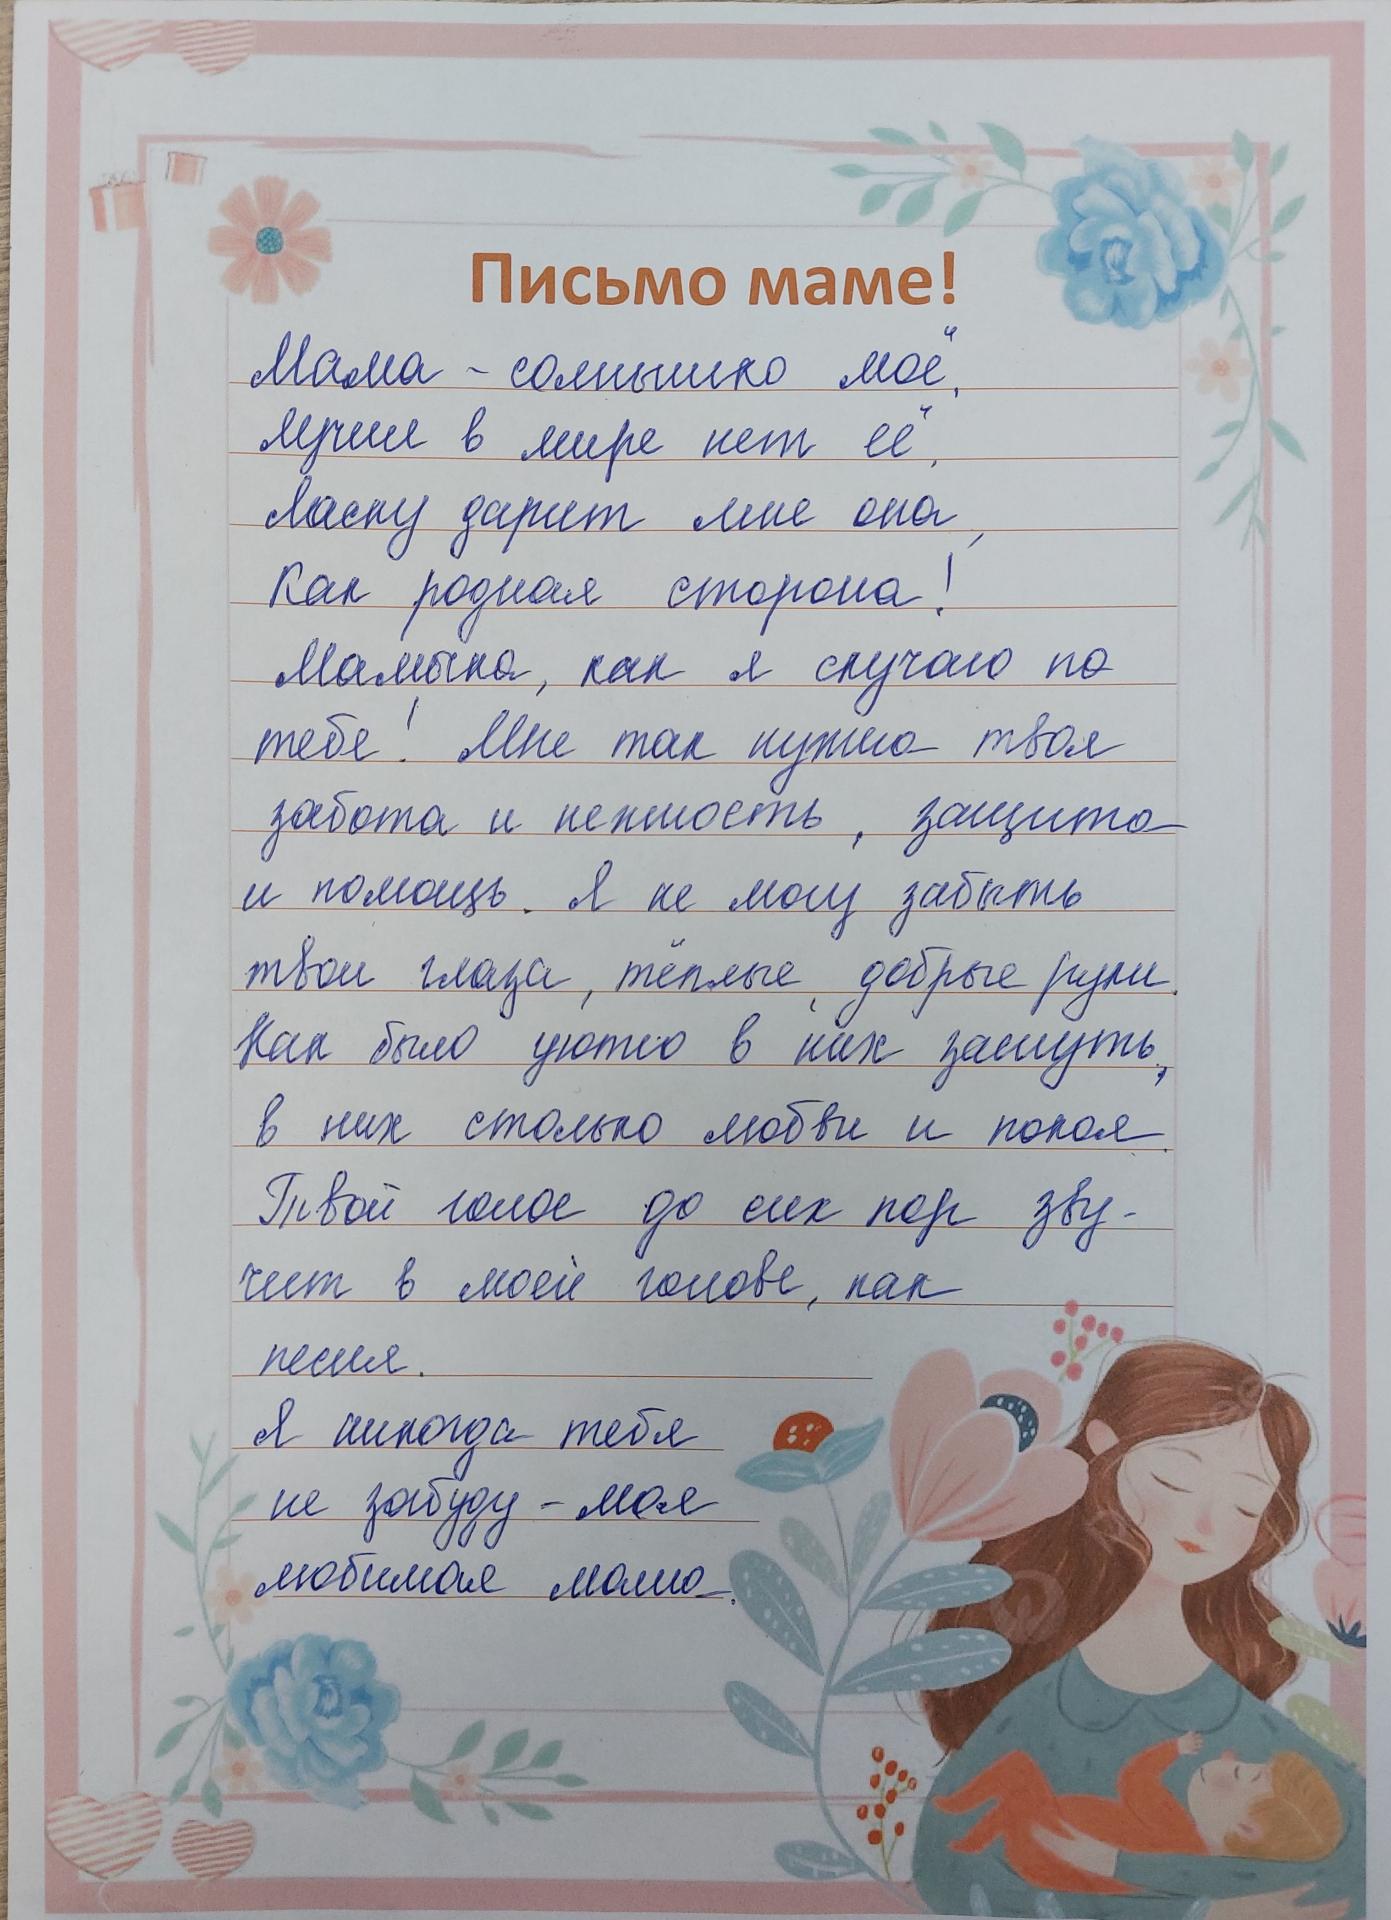 Письмо маме!
Мама - солнышко моё,
Лучше в мире нет её,
Ласку дарит мне она,
Как родная сторона!
Мамочка, как я скучаю по
тебе! Мне так нужна твоя
забота и нежность, защита
и помощь. Я не могу забыть
твои глаза, тёплые, добрые руки.
Как было уютно в них заснуть,
в них столько любви и покоя.
Твой голос до сих пор зву-
чит в моей голове, как
песня.
Я никогда тебя
не забуду - моя
любимая мама.